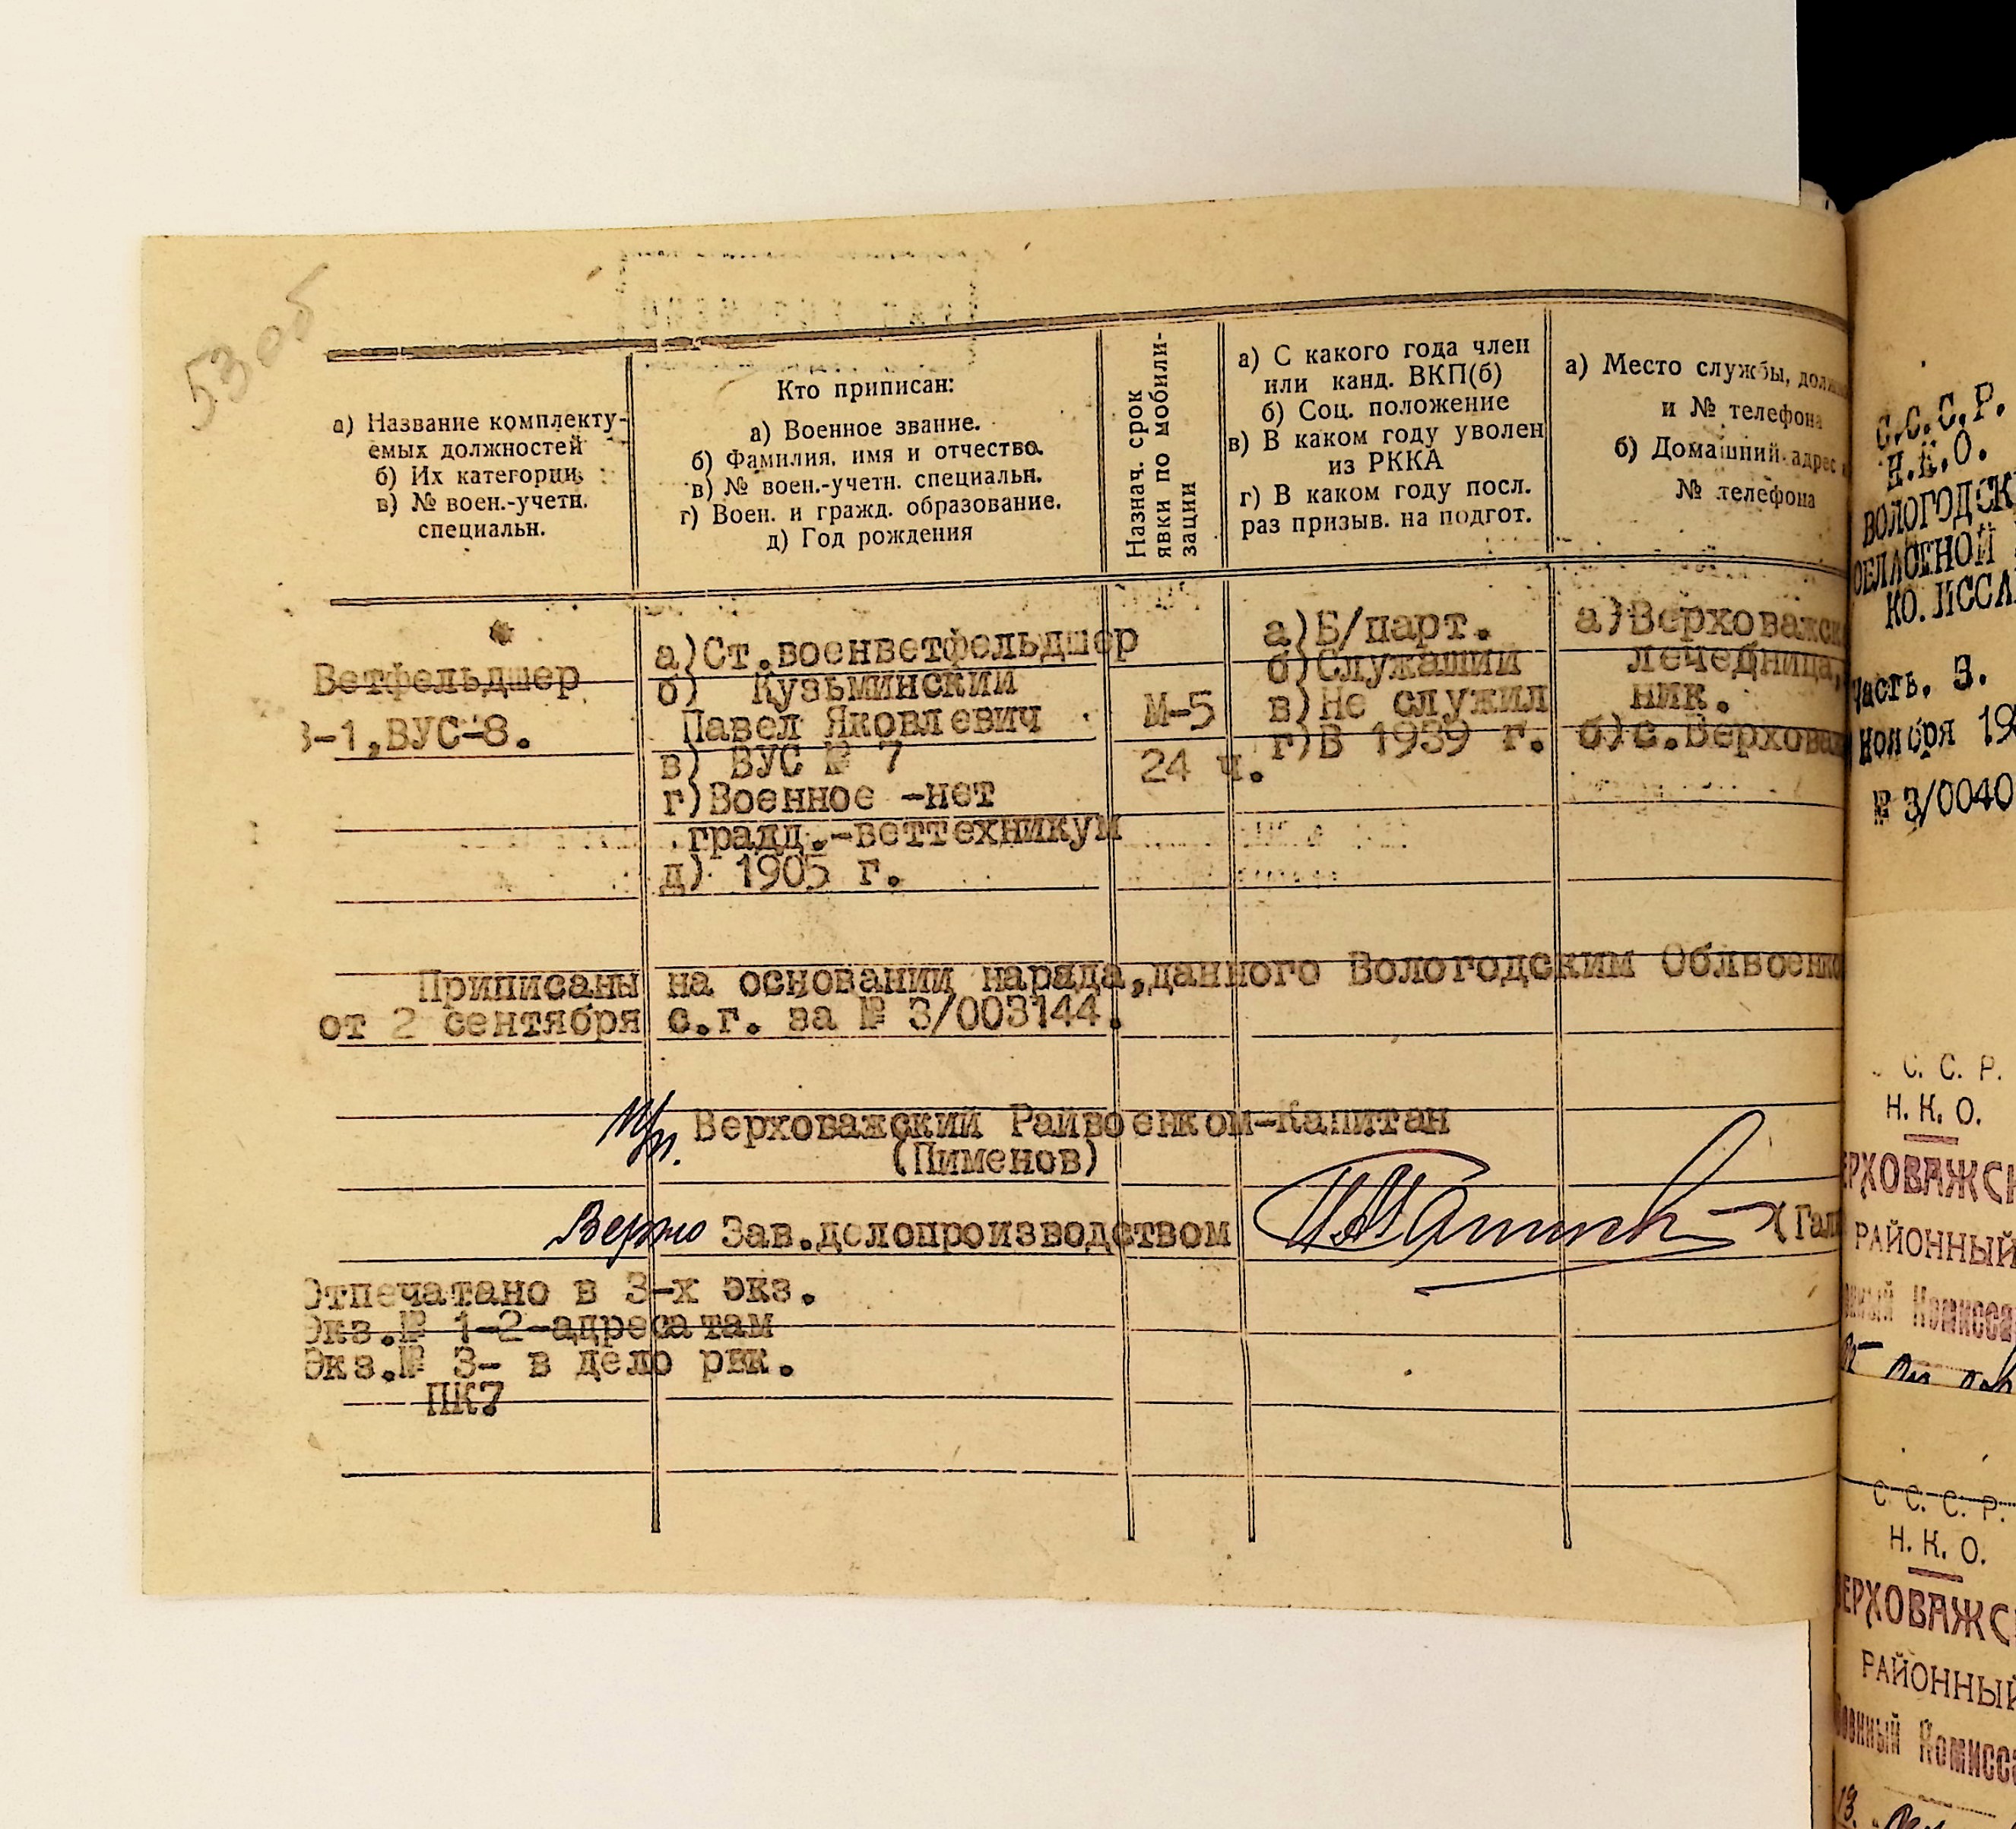 53 об
а) Название комплекту-
емых должностей
б) Их категории
в) № воен.-учетн.
специальн.
Кто приписан:
а) Военное звание.
б) Фамилия, имя и отчество.
в) № воен.-учетн. специальн.
г) Воен. и гражд. образование.
д) Год рождения
Назнач. срок
явки по мобили-
зации
а) С какого года член
или канд. ВКП(б)
б) Соц. положение
в) В каком году уволен
из РККА
г) В каком году посл.
раз призыв. на подгот.
а) Место службы, долж
и № телефона
б) Домашний адрес и
№ телефона
Ветфельдшер
3-1,ВУС-8.
а)Ст.военветфельдшер
б) Кузьминский
Павел Яковлевич
в) ВУС № 7
г)Военное -нет
градц.-веттехникум
д) 1905 г.
М-5
24 ч.
а)Б/парт.
б)Служащий
в)Не служил
г)В 1939 г.
а)Верховажск
лечебница,
ник.
б)с.Верховаж
Приписаны на основании наряда,данного Вологодским Облвоенко
от 2 сентября с.г. за № 3/003144.
п/п. Верховажский Райвоенком-Капитан
(Пименов)
Верно Зав.делопроизводством
(Гал
Отпечатано в 3-х экз.
Экз.№ 1-2-адресатам
Экз.№ 3- в дело рвк.
ПК7
С.С.С.Р.
Н.К.О.
ВОЛОГОДСК
ОБЛАСТНОЙ
КОМИССА
Часть. 3.
ноября 19
№ 3/0040
С. С. Р.
Н. К. О.
ЕРХОВАЖСК
РАЙОННЫЙ
Комисса
С. С. С. Р.
Н. К. О.
ВЕРХОВАЖС
РАЙОННЫЙ
Военный Комисса